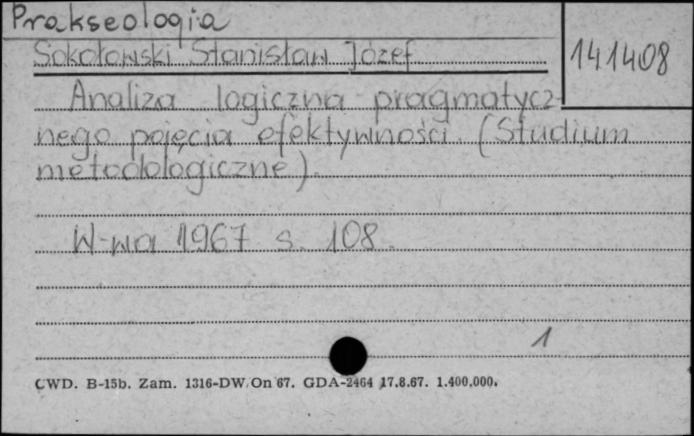 Prakseologia
Sokołowski Stanisław Józef
141408
Analiza logiczna pragmatycz-
nego pojęcia efektywności. (Studium
metodologiczne).
W-wa 1967 s. 108.
1
CWD. B-15b. Zam. 1316-DW On 67. GDA-2464 17.8.67. 1.400.000.